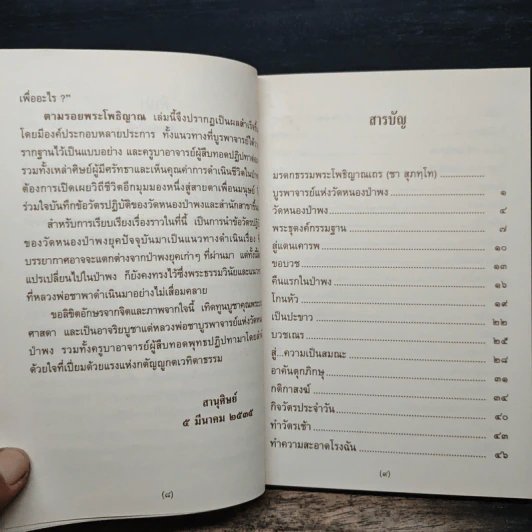 เพื่ออะไร ?"
ตามรอยพระโพธิญาณ เล่มนี้จึงปรากฏเป็นผลสำเร็จขึ้น
โดยมีองค์ประกอบหลายประการ ทั้งแนวทางที่บูรพาจารย์ได้วาง
รากฐานไว้เป็นแบบอย่าง และครูบาอาจารย์ผู้สืบทอดปฏิปทา
รวมทั้งเหล่าศิษย์ผู้มีศรัทธาและเห็นคุณค่าการดำเนินชีวิตในป่าพง
ต้องการเปิดเผยวิถีชีวิตอีกมุมมองหนึ่งสู่สายตาเพื่อนมนุษย์
ร่วมใจบันทึกข้อวัตรปฏิบัติของวัดหนองป่าพงและสำนักสาขา
สำหรับการเรียบเรียงเรื่องราวในที่นี้ เป็นการนำข้อวัตรปฏิบัติ
ของวัดหนองป่าพงยุคปัจจุบันมาเป็นแนวทางดำเนินเรื่อง
บรรยากาศอาจจะแตกต่างจากป่าพงยุคเก่าๆ ที่ผ่านมา แต่ทั้งนี้
แปรเปลี่ยนไปในป่าพง ก็ยังคงทรงไว้ซึ่งพระธรรมวินัยและ
ที่หลวงพ่อชาพาดำเนินมาอย่างไม่เสื่อมคลาย
ขอลิขิตอักษรจากจิตและภาพจากใจนี้ เทิดทูนบูชาคุณพระ
ศาสดา และเป็นอาจริยบูชาแด่หลวงพ่อชาบูรพาจารย์แห่งวัดหนอง
ป่าพง รวมทั้งครูบาอาจารย์ผู้สืบทอดพุทธปฏิปทามาโดย
ด้วยใจที่เปี่ยมด้วยแรงแห่งกตัญญูกตเวทิตาธรรม
สานุศิษย์
๕ มีนาคม ๒๕๓๕
(๘)
สารบัญ
มรดกธรรมพระโพธิญาณเถร (ชา สุภทฺโท)
บูรพาจารย์แห่งวัดหนองป่าพง ๑
วัดหนองป่าพง ๔
พระธุดงค์กรรมฐาน ๗
สู่แดนเคารพ ๑๐
ขอบวช ๑๓
คืนแรกในป่าพง ๑๖
โกนหัว ๑๙
เป็นปะขาว ๒๒
บวชเณร ๒๕
สู่...ความเป็นสมณะ ๒๘
อาคันตุกภิกษุ ๓๑
กติกาสงฆ์ ๓๔
กิจวัตรประจำวัน ๔๐
ทำวัตรเช้า ๔๓
ทำความสะอาดโรงฉัน ๔๖
(๙)